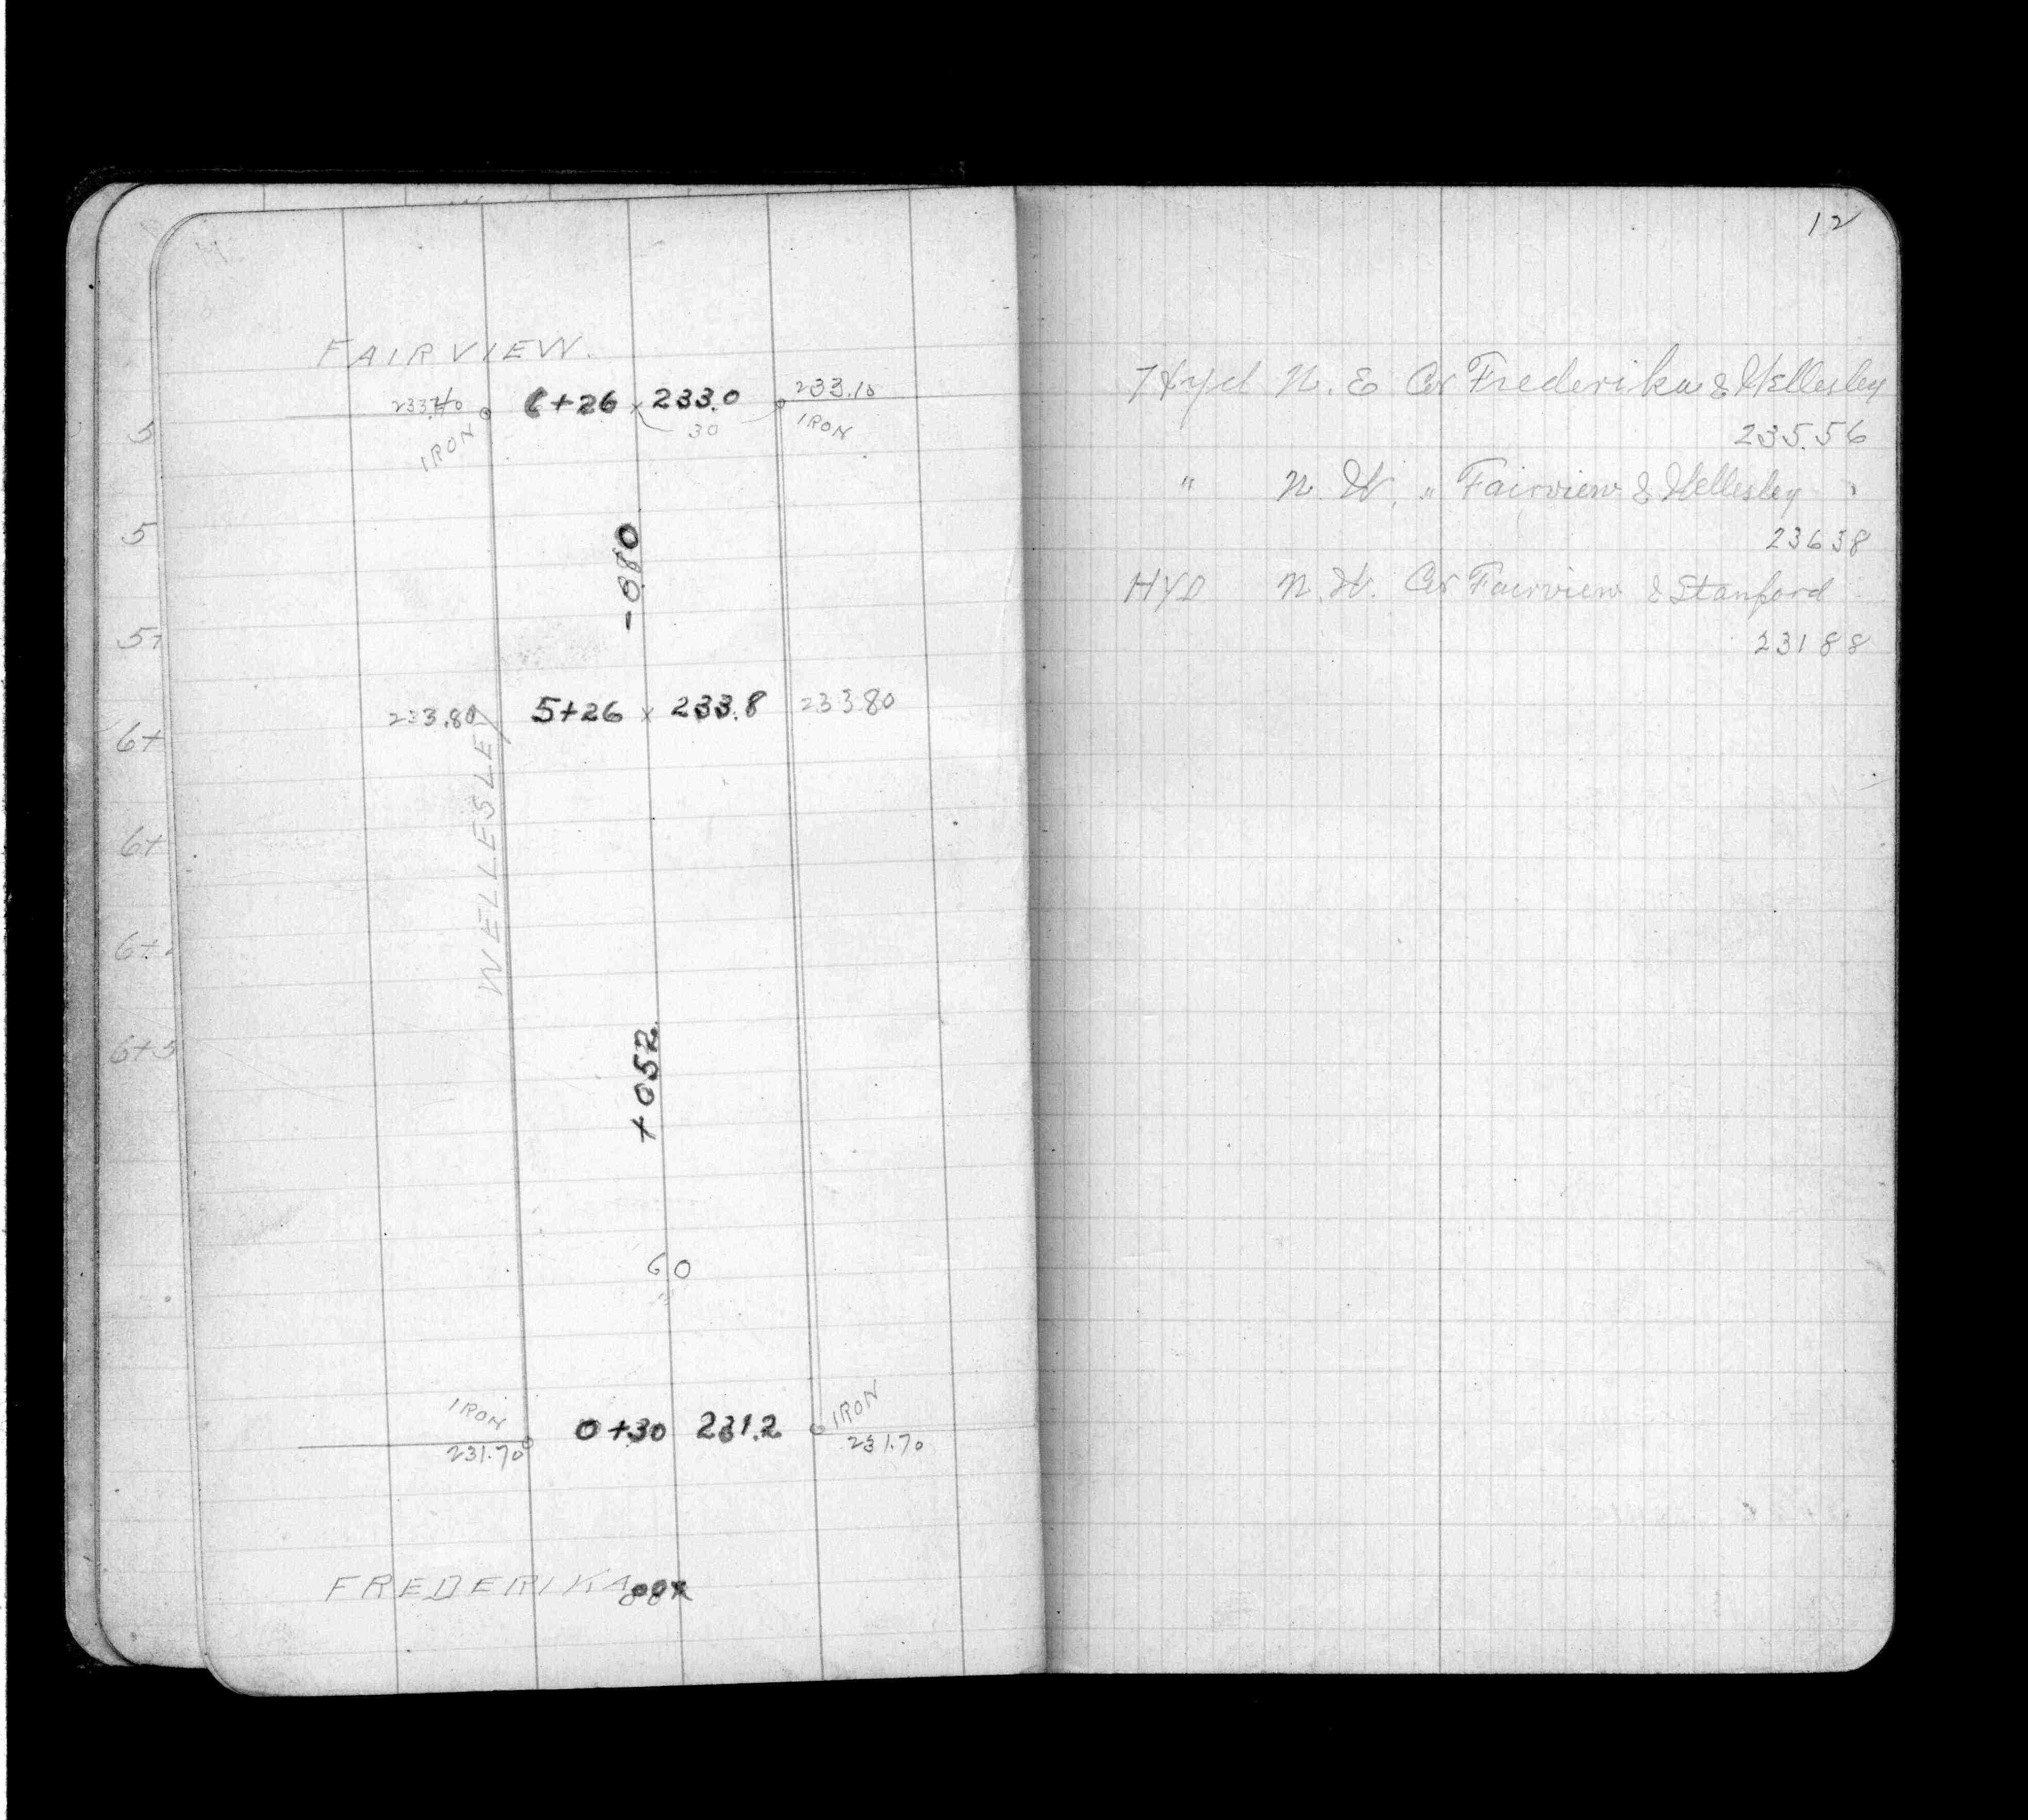 FAIRVIEW.
6+26 x 233.0 233.10
IRON 30 IRON
-0.80
233.80 5+26 x 233.8 233.80
WELLESLEY
+0.52
60
IRON 0+30 231.2 IRON
231.70 231.70
FREDERIKA
5
5
5+
6+
6+
6+
6+5
12
Hyd N. E Cor Frederika & Wellesley
235.56
" N. W. " Fairview & Wellesley
236 38
HYD N. W. Cor Fairview & Stanford
231 88